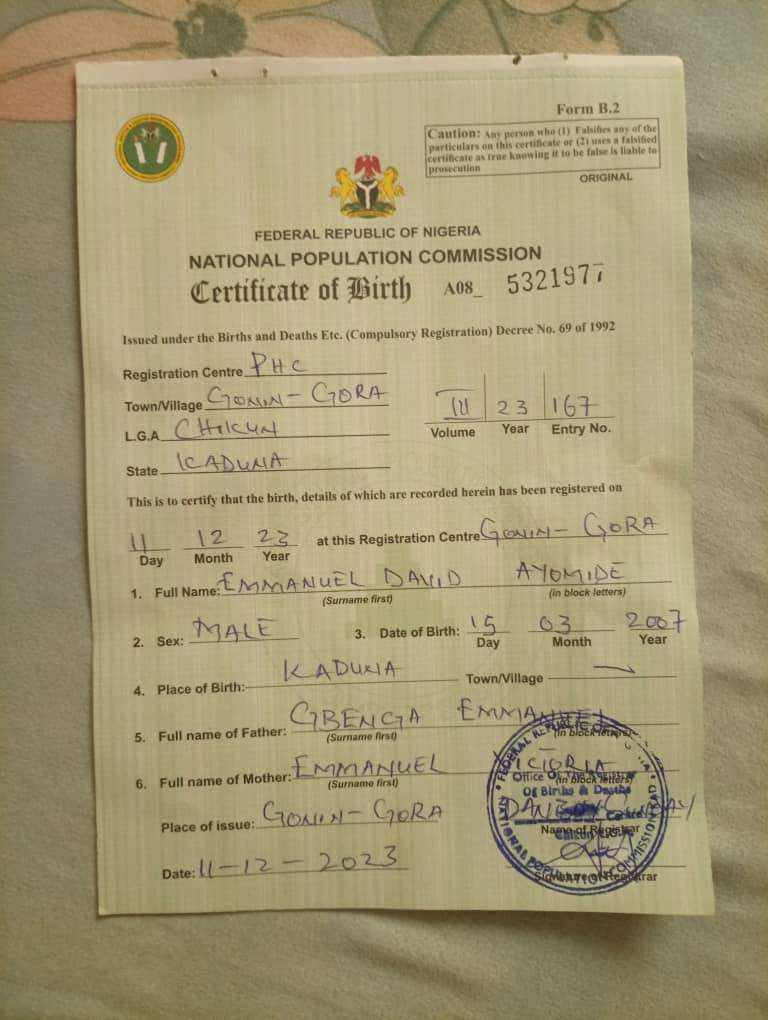 Form B.2
Caution: Any person who (1) Falsifies any of the
particulars on this certificate or (2) uses a falsified
certificate as true knowing it to be false is liable to
prosecution
ORIGINAL
FEDERAL REPUBLIC OF NIGERIA
NATIONAL POPULATION COMMISSION
Certificate of Birth A08_ 5321977
Issued under the Births and Deaths Etc. (Compulsory Registration) Decree No. 69 of 1992
Registration Centre PHC
Town/Village GONIN-GORA
L.G.A CHIKUN
State KADUNA
III 23 167
Volume Year Entry No.
This is to certify that the birth, details of which are recorded herein has been registered on
11 12 23 at this Registration Centre GONIN-GORA
Day Month Year
1. Full Name: EMMANUEL DAVID AYOMIDE
(Surname first) (in block letters)
2. Sex: MALE 3. Date of Birth: 15 03 2007
Day Month Year
4. Place of Birth: KADUNA Town/Village
5. Full name of Father: GBENGA EMMANUEL
(Surname first) (in block letters)
6. Full name of Mother: EMMANUEL VICTORIA
(Surname first) (in block letters)
Place of issue: GONIN-GORA
Name of Registrar
Date: 11-12-2023
Signature of Registrar
FEDERAL REPUBLIC OF
Office Of The Registrar
Of Births & Deaths
NATIONAL POPULATION COMMISSION